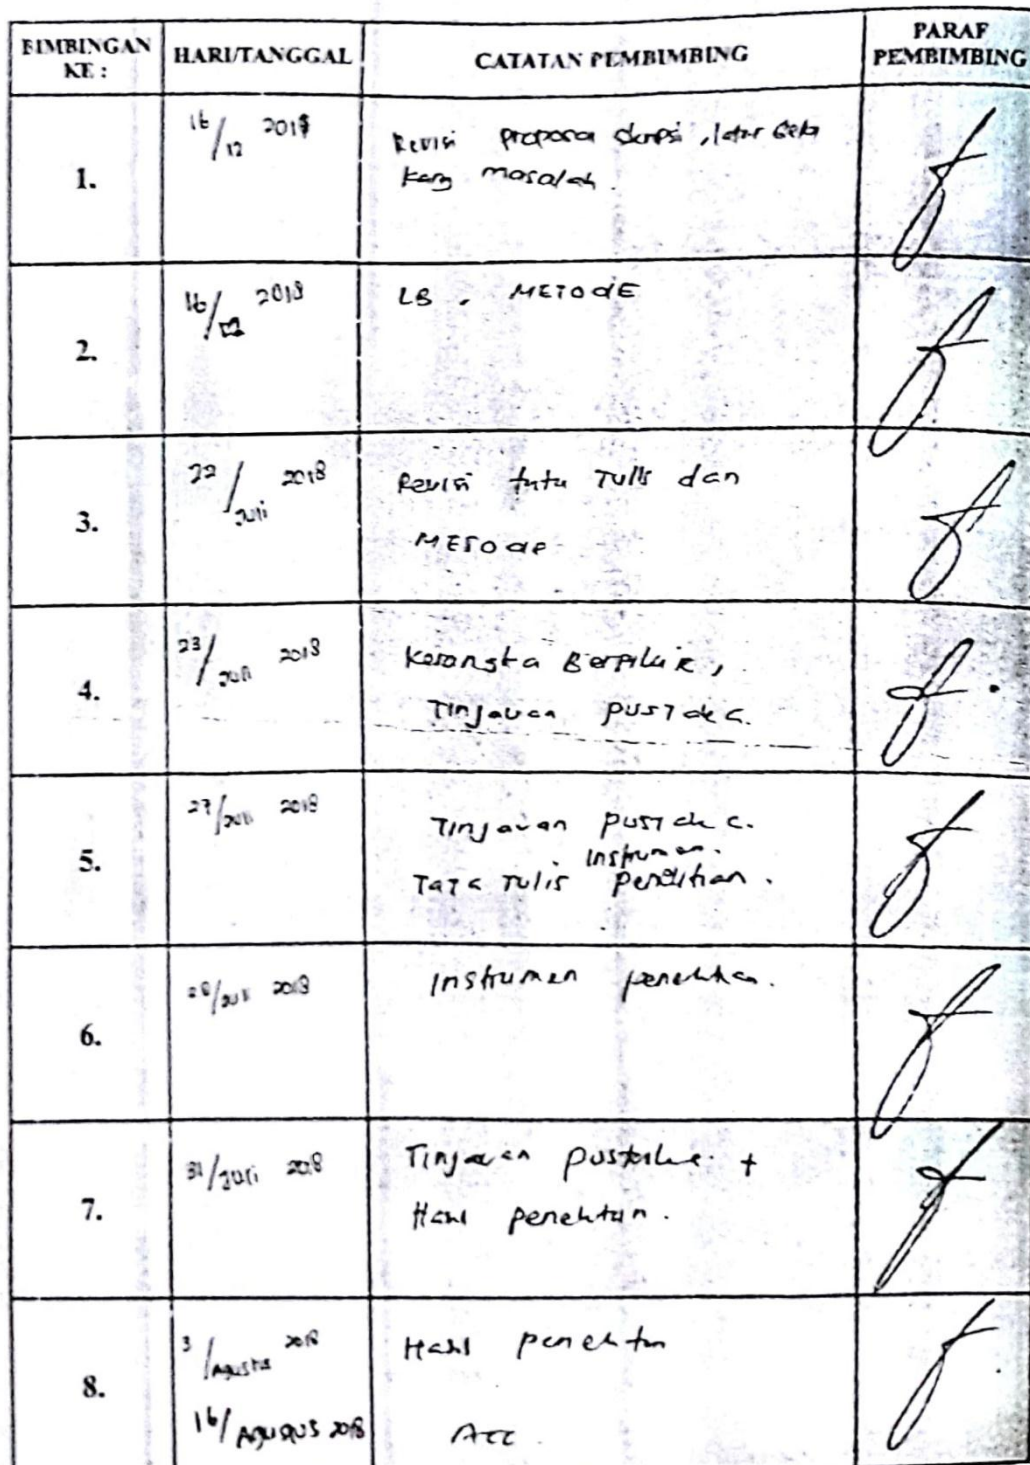 BIMBINGAN KE :
HARI/TANGGAL
CATATAN PEMBIMBING
PARAF PEMBIMBING
1.
16/12 2018
Revisi proposa skripsi, latar bela
kang masalah.
2.
16/ 2018
LB . METODE
3.
22/Juli 2018
Revisi tata Tulis dan
METODE
4.
23/Juli 2018
Kerangka Berpikir,
Tinjauan pustaka.
5.
27/Juli 2018
Tinjauan pustaka.
Instrumen.
Tata Tulis penelitian.
6.
28/Juli 2018
Instrumen penelitian.
7.
31/Juli 2018
Tinjauan pustaka. +
Hasil penelitian.
8.
3/Agustus 2018
Hasil penelitian
16/Agustus 2018
Acc.